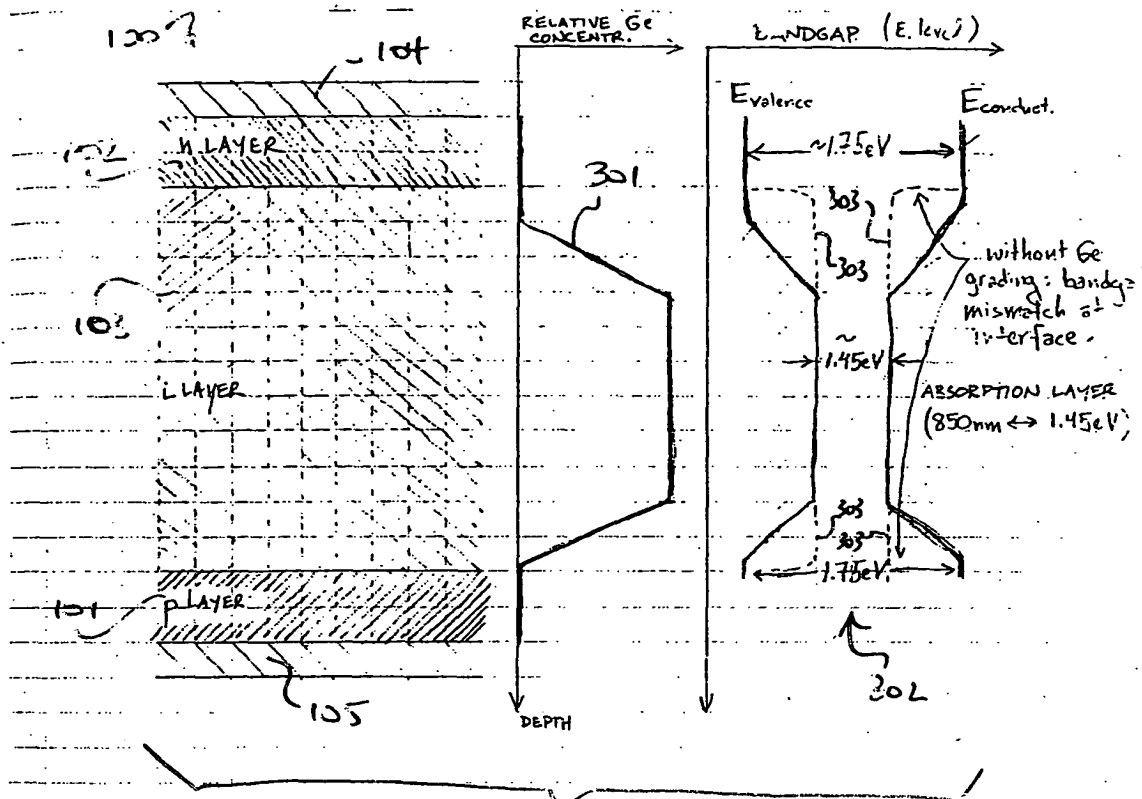 100
104
n LAYER
103
i LAYER
101
p LAYER
105
RELATIVE Ge
CONCENTR.
301
DEPTH
(E. level)
Evalence
Econduct.
~1.75eV
303
303
without Ge
grading: bandga
mismatch at
interface.
~
1.45eV
ABSORPTION LAYER
(850nm ↔ 1.45eV)
303
303
1.75eV
302